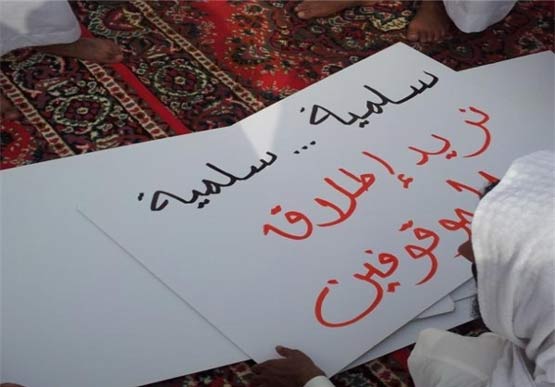 سلمية ... سلمية
نريد إطلاق
الموقوفين